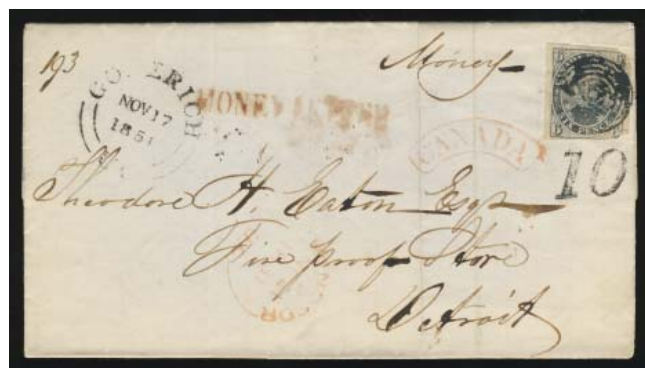 193
Money
GODERICH
NOV 17
1851
MONEY LETTER
CANADA
10
Theodore H. Eaton Esqr
Fire proof Store
Detroit